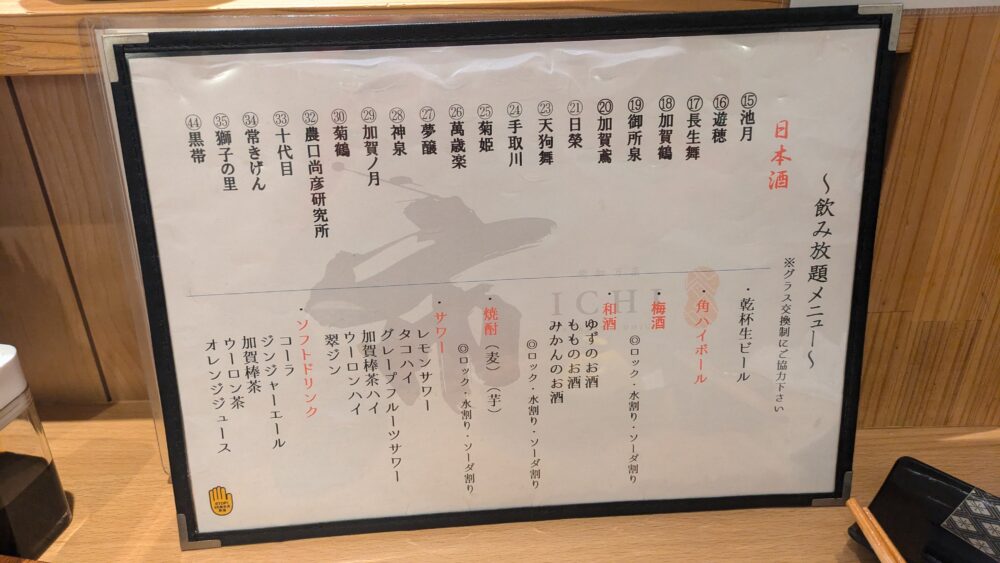 ～飲み放題メニュー～
※グラス交換制にご協力下さい
日本酒
⑮池月
⑯遊穂
⑰長生舞
⑱加賀鶴
⑲御所泉
⑳加賀鳶
㉑日榮
㉓天狗舞
㉔手取川
㉕菊姫
㉖萬歳楽
㉗夢醸
㉘神泉
㉙加賀ノ月
㉚菊鶴
㉜農口尚彦研究所
㉝十代目
㉞常きげん
㉟獅子の里
㊹黒帯
・乾杯生ビール
・角ハイボール
・梅酒
◎ロック・水割り・ソーダ割り
・和酒
ゆずのお酒
もものお酒
みかんのお酒
◎ロック・水割り・ソーダ割り
・焼酎（麦）（芋）
◎ロック・水割り・ソーダ割り
・サワー
レモンサワー
タコハイ
グレープフルーツサワー
加賀棒茶ハイ
ウーロンハイ
翠ジン
・ソフトドリンク
コーラ
ジンジャーエール
加賀棒茶
ウーロン茶
オレンジジュース
ICHI